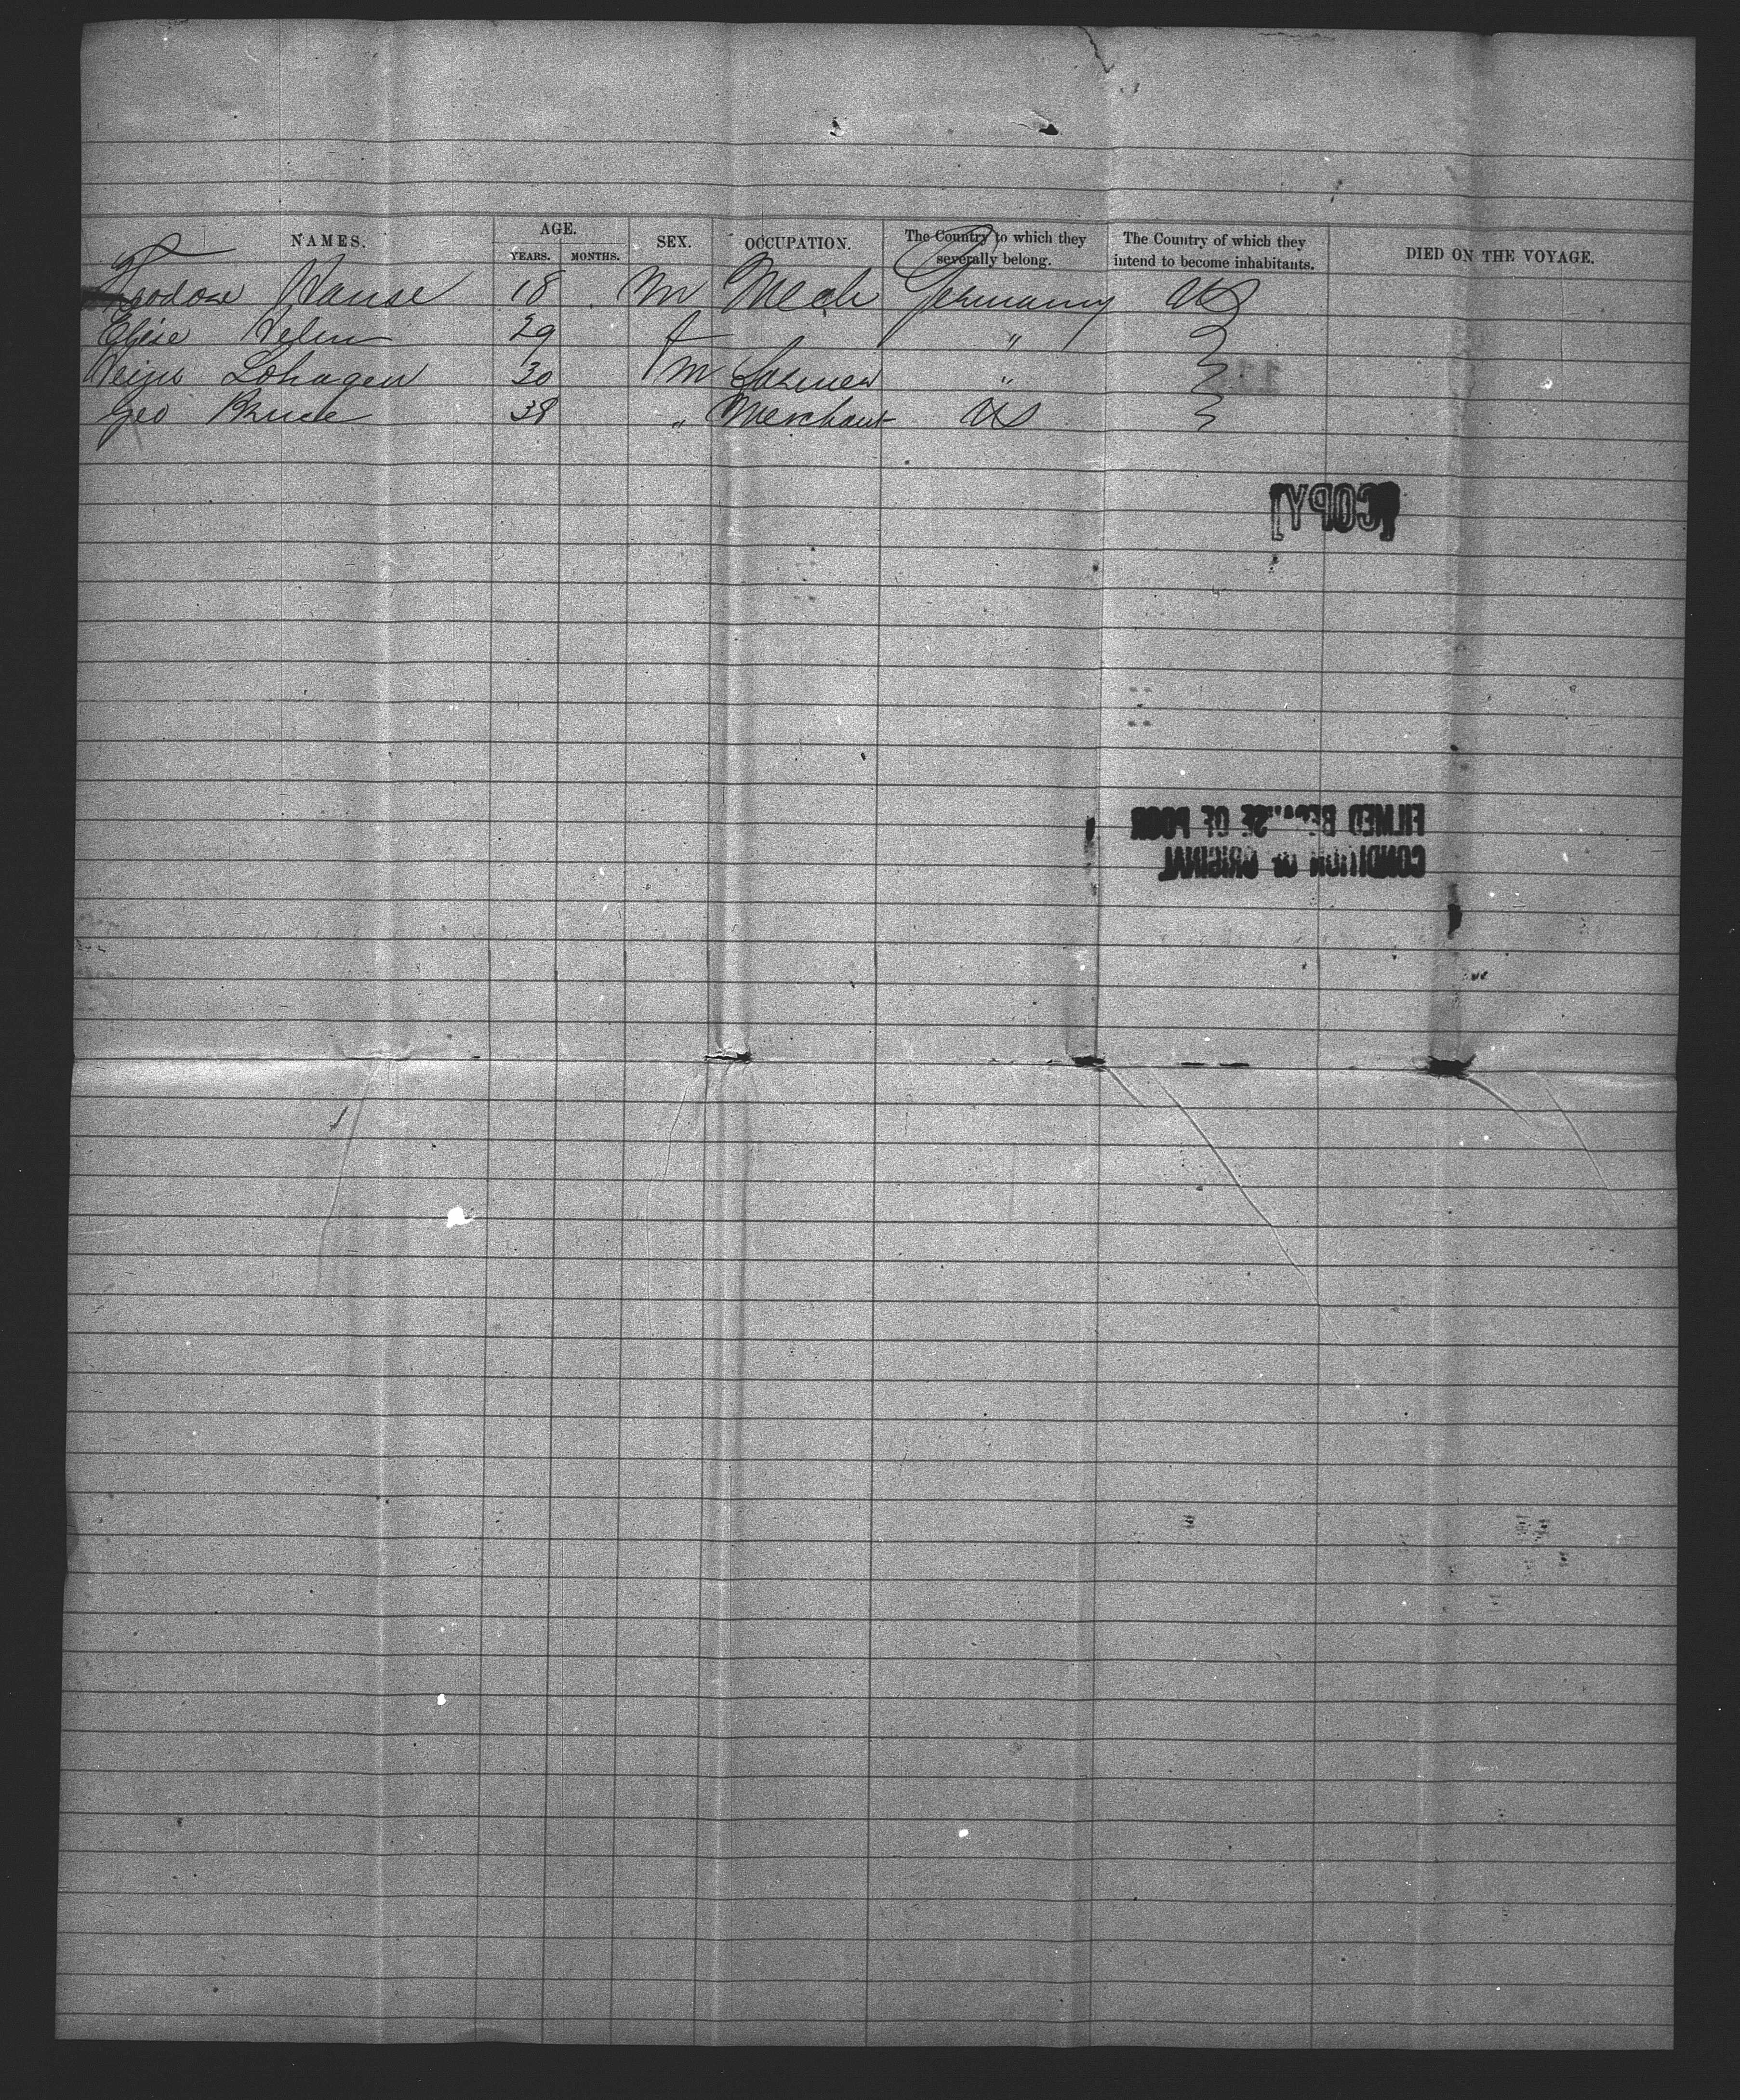 NAMES. AGE. SEX. OCCUPATION. The Country to which they severally belong. The Country of which they intend to become inhabitants. DIED ON THE VOYAGE.
YEARS. MONTHS.
Hause 18 M Mech Germany US
Elise Helm 29 f "
Lohagen 30 M Farmer "
Geo Bruce 38 " Merchant US
[COPY]
FILMED BECAUSE OF POOR
CONDITION OF ORIGINAL